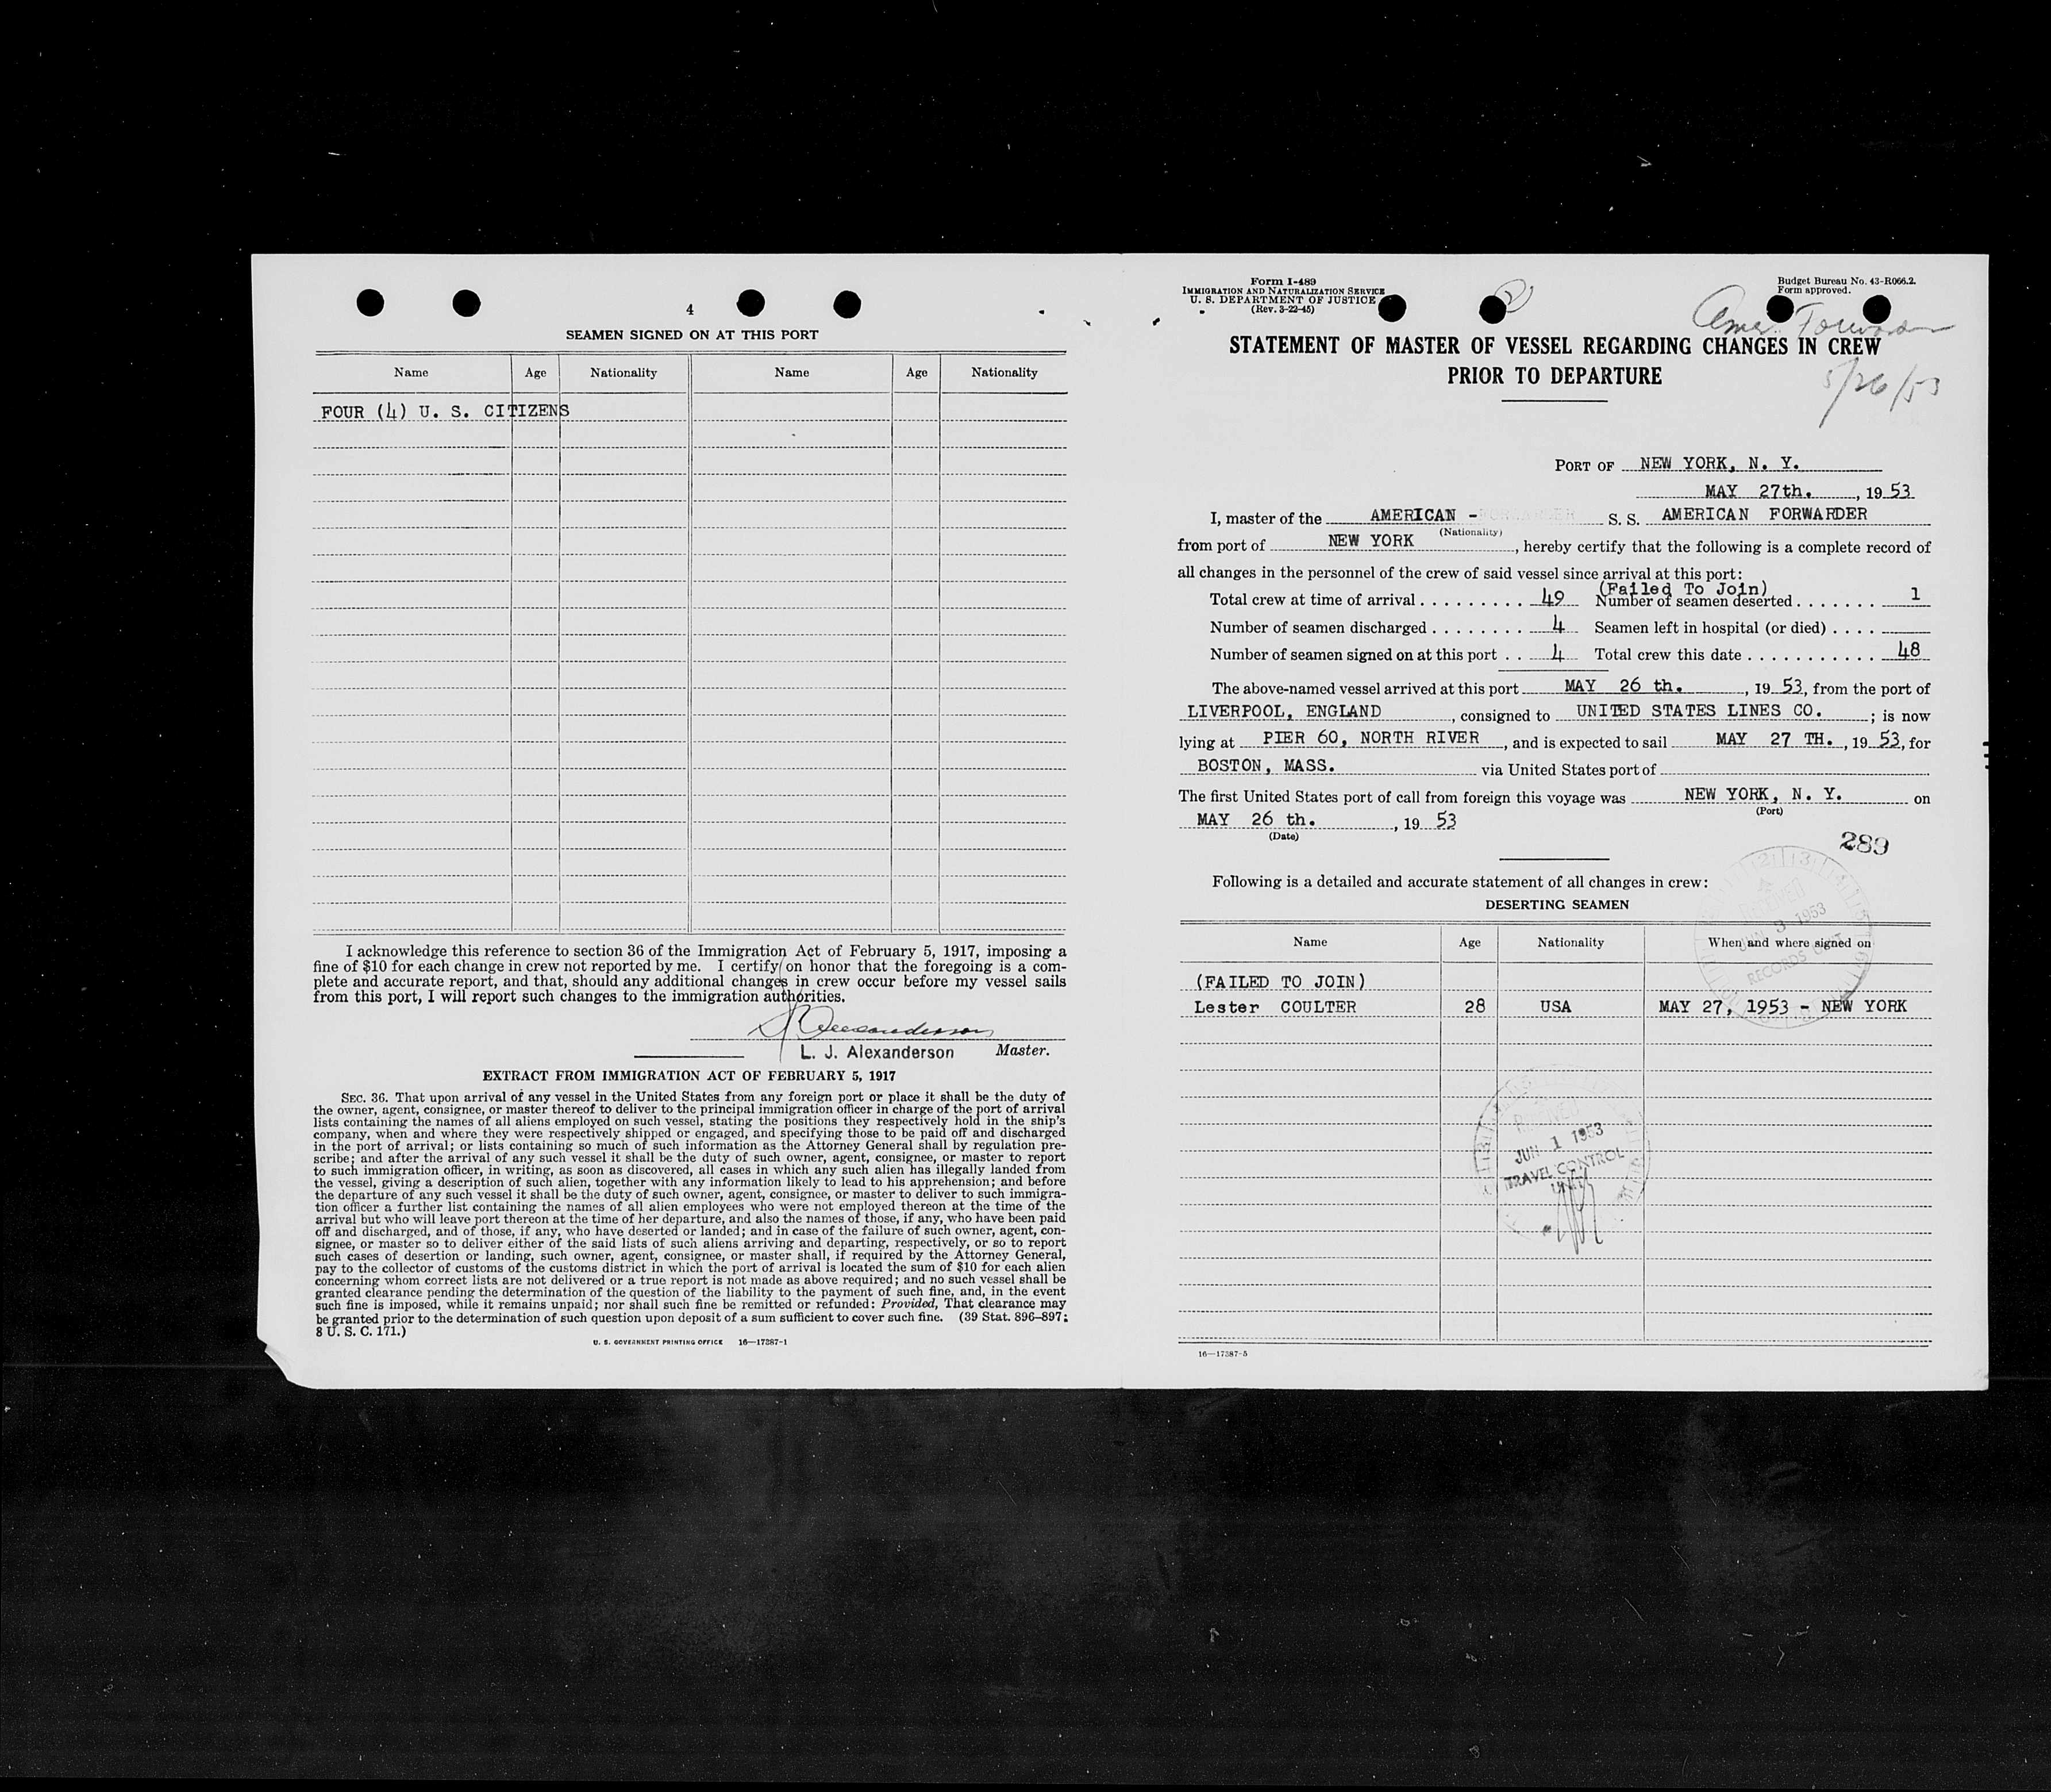 4
SEAMEN SIGNED ON AT THIS PORT
Name Age Nationality Name Age Nationality
FOUR (4) U. S. CITIZENS
I acknowledge this reference to section 36 of the Immigration Act of February 5, 1917, imposing a
fine of $10 for each change in crew not reported by me. I certify on honor that the foregoing is a com-
plete and accurate report, and that, should any additional changes in crew occur before my vessel sails
from this port, I will report such changes to the immigration authorities.
L. J. Alexanderson Master.
EXTRACT FROM IMMIGRATION ACT OF FEBRUARY 5, 1917
SEC. 36. That upon arrival of any vessel in the United States from any foreign port or place it shall be the duty of
the owner, agent, consignee, or master thereof to deliver to the principal immigration officer in charge of the port of arrival
lists containing the names of all aliens employed on such vessel, stating the positions they respectively hold in the ship's
company, when and where they were respectively shipped or engaged, and specifying those to be paid off and discharged
in the port of arrival; or lists containing so much of such information as the Attorney General shall by regulation pre-
scribe; and after the arrival of any such vessel it shall be the duty of such owner, agent, consignee, or master to report
to such immigration officer, in writing, as soon as discovered, all cases in which any such alien has illegally landed from
the vessel, giving a description of such alien, together with any information likely to lead to his apprehension; and before
the departure of any such vessel it shall be the duty of such owner, agent, consignee, or master to deliver to such immigra-
tion officer a further list containing the names of all alien employees who were not employed thereon at the time of the
arrival but who will leave port thereon at the time of her departure, and also the names of those, if any, who have been paid
off and discharged, and of those, if any, who have deserted or landed; and in case of the failure of such owner, agent, con-
signee, or master so to deliver either of the said lists of such aliens arriving and departing, respectively, or so to report
such cases of desertion or landing, such owner, agent, consignee, or master shall, if required by the Attorney General,
pay to the collector of customs of the customs district in which the port of arrival is located the sum of $10 for each alien
concerning whom correct lists are not delivered or a true report is not made as above required; and no such vessel shall be
granted clearance pending the determination of the question of the liability to the payment of such fine, and, in the event
such fine is imposed, while it remains unpaid; nor shall such fine be remitted or refunded: Provided, That clearance may
be granted prior to the determination of such question upon deposit of a sum sufficient to cover such fine. (39 Stat. 896–897;
8 U. S. C. 171.)
U. S. GOVERNMENT PRINTING OFFICE 16—17387-1
Form I-489
IMMIGRATION AND NATURALIZATION SERVICE
U. S. DEPARTMENT OF JUSTICE
(Rev. 3-22-45)
2
Budget Bureau No. 43-R066.2.
Form approved.
Amer. Forwarder
5/26/53
STATEMENT OF MASTER OF VESSEL REGARDING CHANGES IN CREW
PRIOR TO DEPARTURE
PORT OF NEW YORK, N. Y.
MAY 27th. , 19 53
I, master of the AMERICAN - S. S. AMERICAN FORWARDER
(Nationality)
from port of NEW YORK , hereby certify that the following is a complete record of
all changes in the personnel of the crew of said vessel since arrival at this port:
(Failed To Join)
Total crew at time of arrival . . . . . . . . . 49 Number of seamen deserted . . . . . . . 1
Number of seamen discharged . . . . . . . . 4 Seamen left in hospital (or died) . . . .
Number of seamen signed on at this port . . 4 Total crew this date . . . . . . . . . . . 48
The above-named vessel arrived at this port MAY 26 th. , 19 53, from the port of
LIVERPOOL, ENGLAND , consigned to UNITED STATES LINES CO. ; is now
lying at PIER 60, NORTH RIVER , and is expected to sail MAY 27 TH. , 19 53, for
BOSTON, MASS. via United States port of
The first United States port of call from foreign this voyage was NEW YORK, N. Y. on
(Port)
MAY 26 th. , 19 53
(Date)
289
Following is a detailed and accurate statement of all changes in crew:
DESERTING SEAMEN
RECEIVED
JUN 3 1953
RECORDS UNIT
Name Age Nationality When and where signed on
(FAILED TO JOIN)
Lester COULTER 28 USA MAY 27, 1953 - NEW YORK
RECEIVED
JUN 1 1953
TRAVEL CONTROL
UNIT
16—17387-5